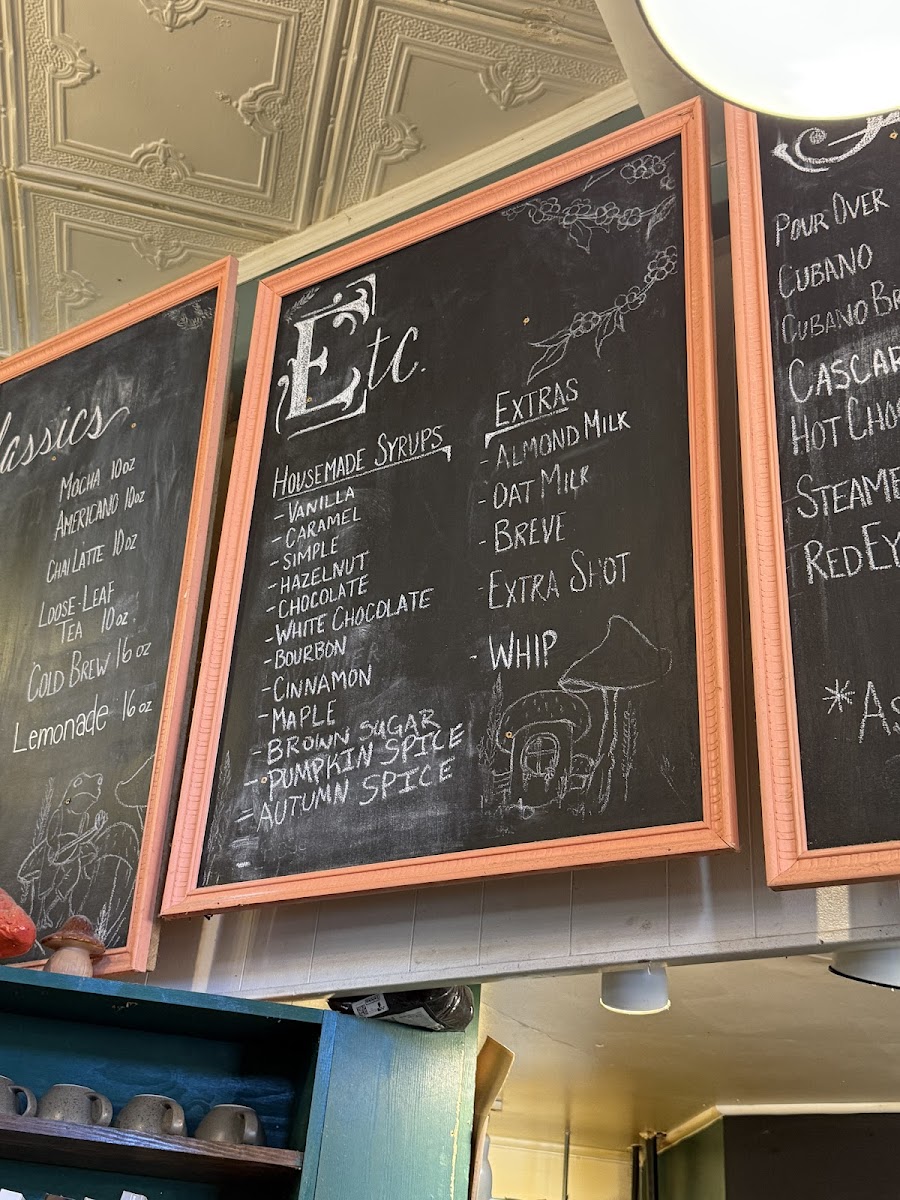 Classics
Mocha 10oz
Americano 10oz
Chai Latte 10oz
Loose-Leaf
Tea 10oz.
Cold Brew 16oz
Lemonade 16oz
Etc.
Housemade Syrups
- Vanilla
- Caramel
- Simple
- Hazelnut
- Chocolate
- White Chocolate
- Bourbon
- Cinnamon
- Maple
- Brown Sugar
- Pumpkin Spice
- Autumn Spice
Extras
- Almond Milk
- Oat Milk
- Breve
- Extra Shot
- Whip
Pour Over
Cubano
Cubano
Hot